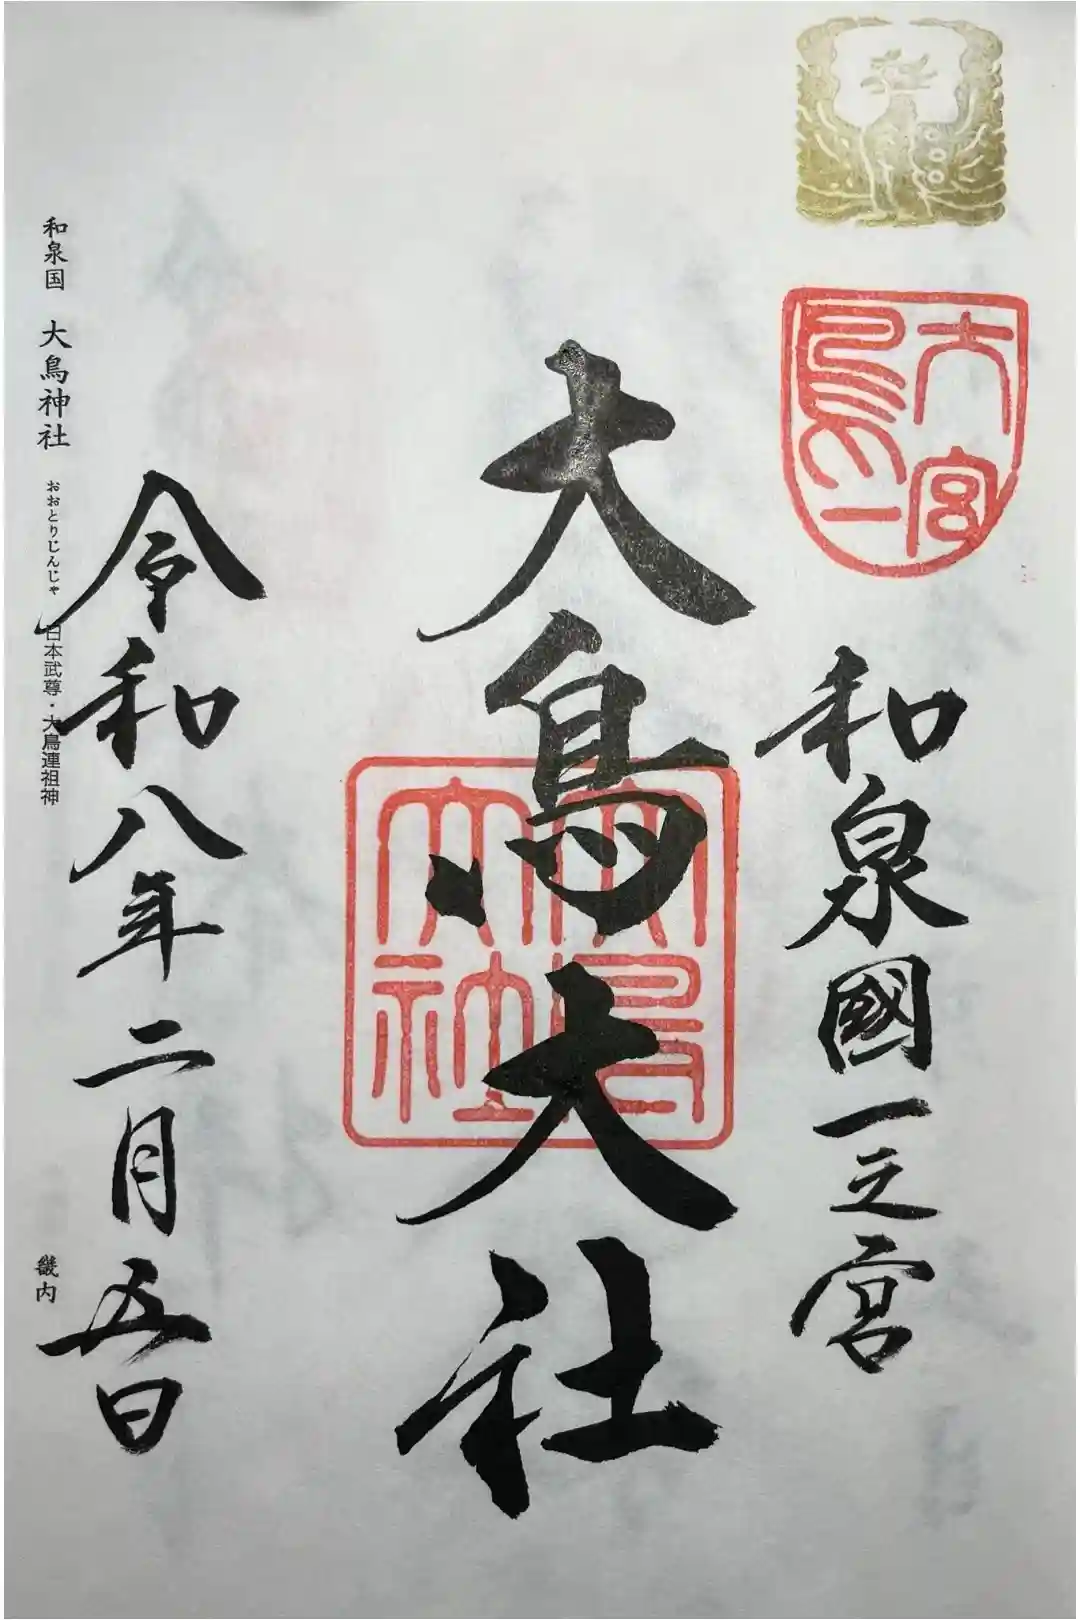 大鳥一宮
和泉國一之宮
大鳥大社
大鳥大社
令和八年二月五日
和泉国 大鳥神社 おおとりじんじゃ 日本武尊・大鳥連祖神 畿内